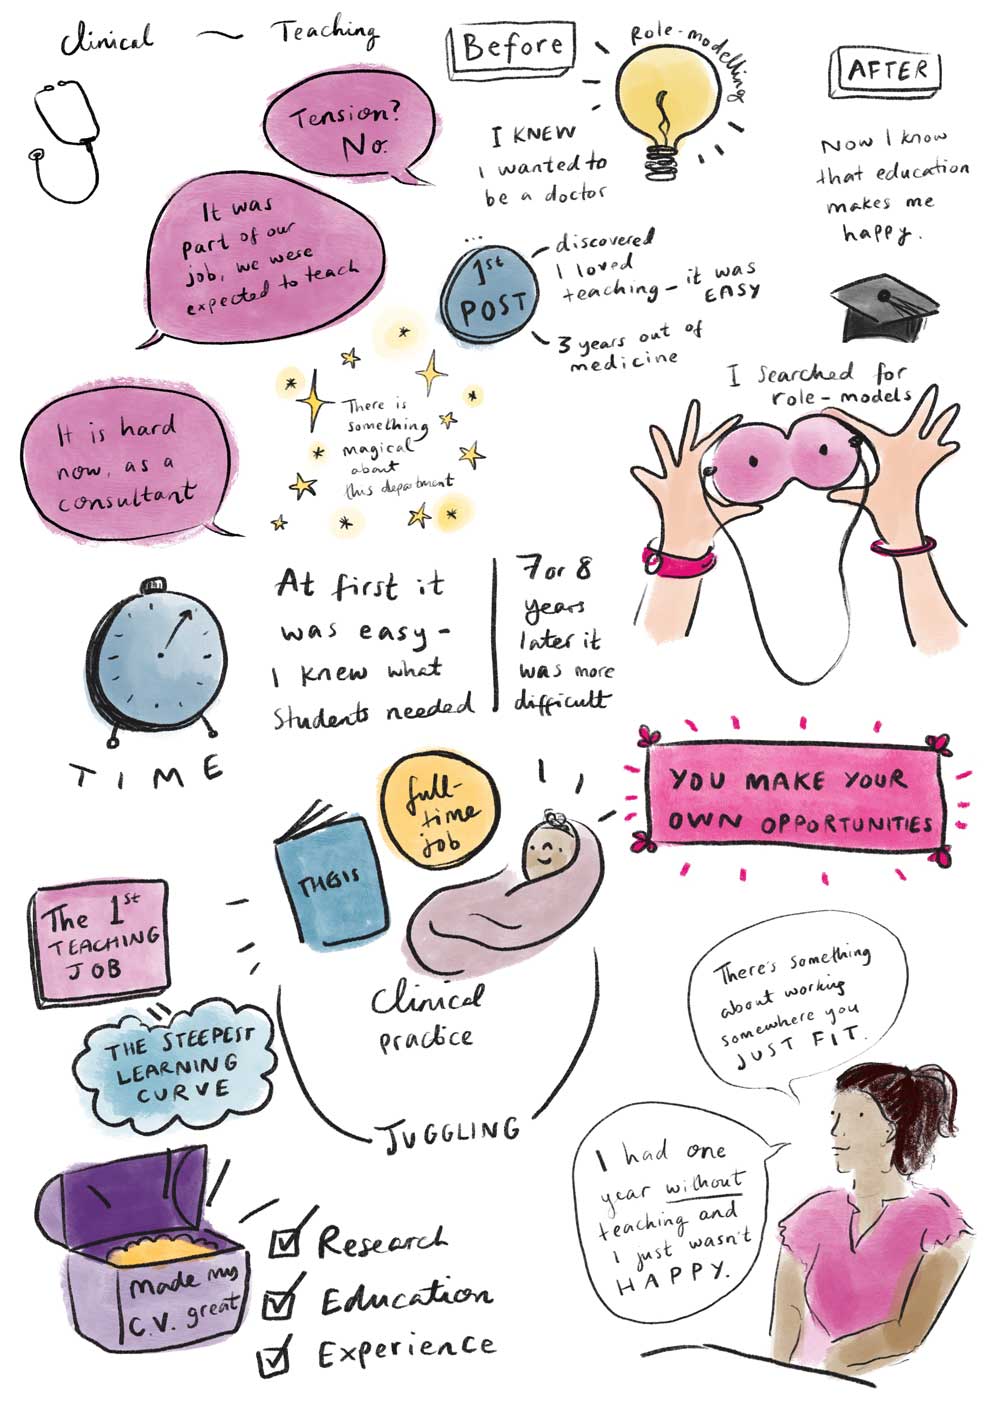 Clinical ~ Teaching
Tension?
No.
It was
part of our
job, we were
expected to teach
It is hard
now, as a
consultant
Before
Role-modelling
I KNEW
I wanted to
be a doctor
AFTER
Now I know
that education
makes me
happy.
...
1st
POST
discovered
I loved
teaching - it was
EASY
3 years out of
medicine
There is
something
magical
about
this department
I searched for
role-models
TIME
At first it
was easy -
I knew what
students needed
7 or 8
years
later it
was more
difficult
YOU MAKE YOUR
OWN OPPORTUNITIES
THESIS
full-
time
job
Clinical
practice
JUGGLING
The 1st
TEACHING
JOB
THE STEEPEST
LEARNING
CURVE
made my
C.V. great
Research
Education
Experience
There's something
about working
somewhere you
JUST FIT.
I had one
year without
teaching and
I just wasn't
HAPPY.